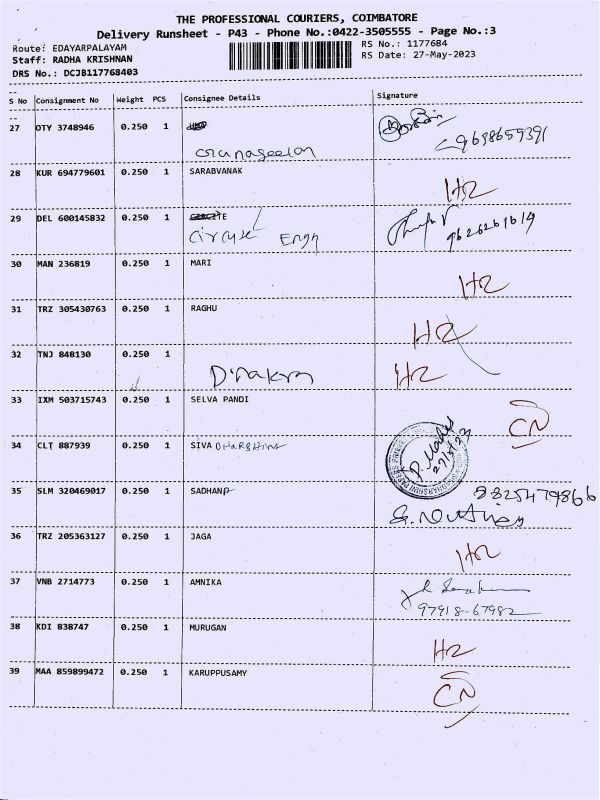 THE PROFESSIONAL COURIERS, COIMBATORE
Delivery Runsheet - P43 - Phone No.:0422-3505555 - Page No.:3
Route: EDAYARPALAYAM
Staff: RADHA KRISHNAN
DRS No.: DCJB117768403
RS No.: 1177684
RS Date: 27-May-2023
S No Consignment No Weight PCS Consignee Details Signature
27 OTY 3748946 0.250 1
9698659391
28 KUR 694779601 0.250 1 SARABVANAK HR
29 DEL 600145832 0.250 1
Engg
9626261619
30 MAN 236819 0.250 1 MARI HR
31 TRZ 305430763 0.250 1 RAGHU HR
32 TNJ 848130 0.250 1 HR
33 IXM 503715743 0.250 1 SELVA PANDI CN
34 CLT 887939 0.250 1 SIVA DHARSHINI P. Mahes 27/5/23
35 SLM 320469017 0.250 1 SADHANP
9825479866
36 TRZ 205363127 0.250 1 JAGA HR
37 VNB 2714773 0.250 1 AMNIKA
97918-67982
38 KDI 838747 0.250 1 MURUGAN HR
39 MAA 859899472 0.250 1 KARUPPUSAMY CN